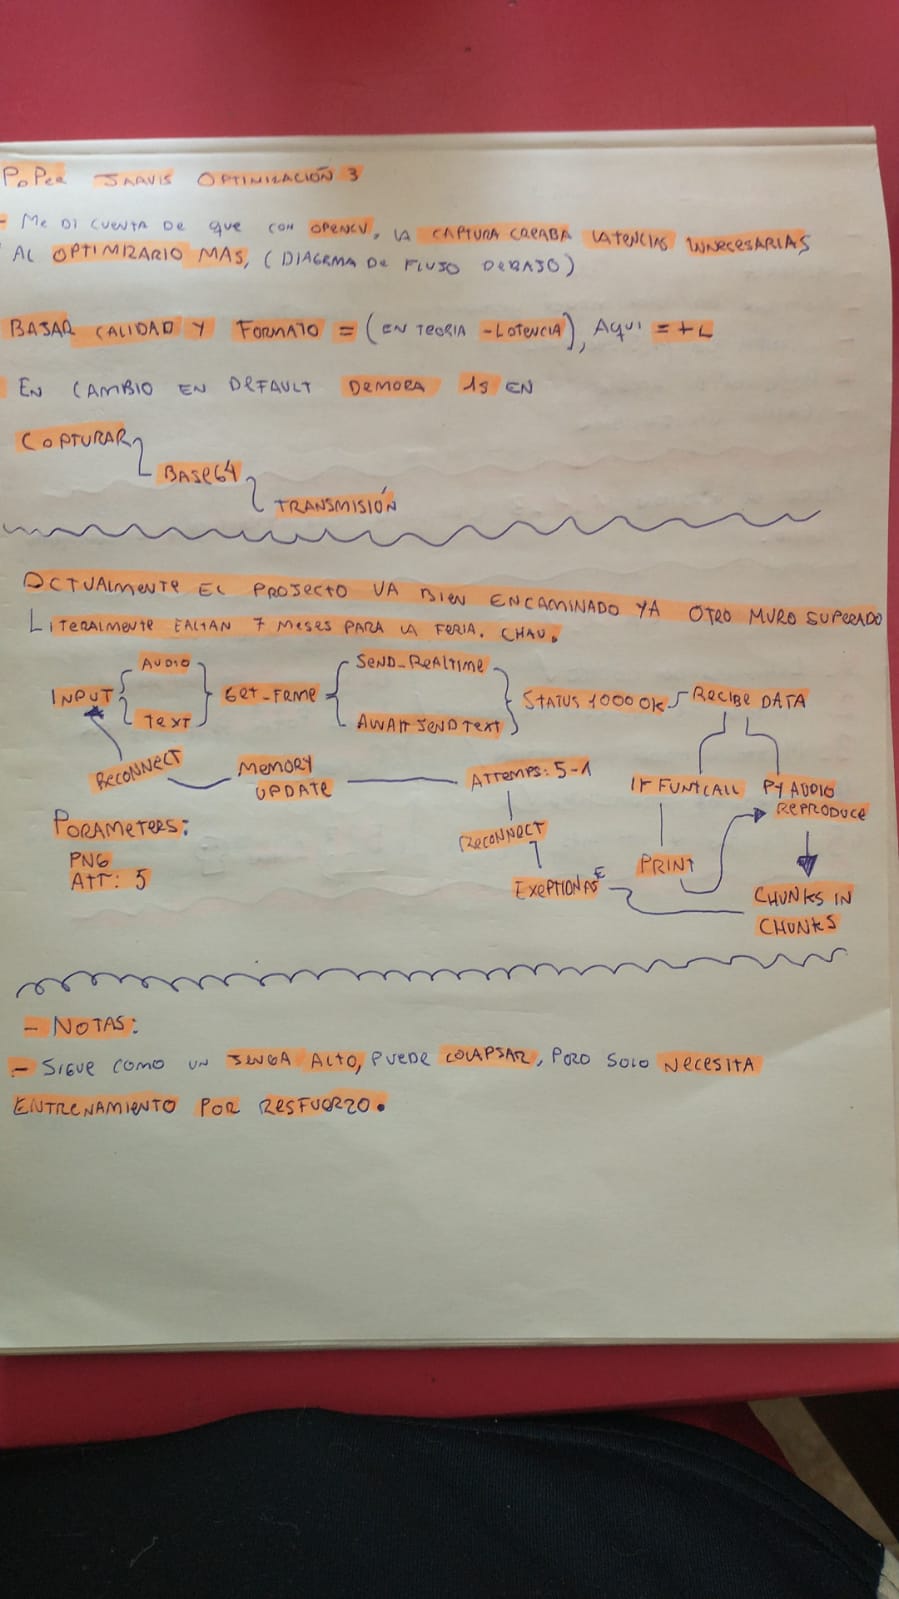 PaPer JARVIS OPTIMIZACIÓN 3
- Me DI CUENTA De que CON OPENCV, LA CAPTURA CREABA LATENCIAS INNECESARIAS
AL OPTIMIZARLO MAS, (DIAGRMA De FLUJO DEBAJO)
BAJAR CALIDAD Y FORMATO = (EN TEORIA -LaTENCIA), AQUI = +L
EN CAMBIO EN DEFAULT DEMORA 1S EN
CaPTURAR
BASE64
TRANSMISIÓN
ACTUALMENTE EL PROJECTO VA BIEN ENCAMINADO YA OTRO MURO SUPERADO
LITERALMENTE FALTAN 7 MESES PARA LA FERIA. CHAU.
INPUT
AUDIO
TEXT
GET_FRME
SEND_REALTIME
AWAIT SEND TEXT
STATUS 1000 OK
RECIBE DATA
RECONNECT
MEMORY
UPDATE
ATTEMPS: 5-1
RECONNECT
EXEPTION AS E
IF FUNTCALL
PRINT
PYAUDIO
REPRODUCE
CHUNKS IN
CHUNKS
PaRAMETERS:
PNG
ATT: 5
- NOTAS:
- SIGUE COMO UN JENGA ALTO, PUEDE COLAPSAR, PERO SOLO NECESITA
ENTRENAMIENTO POR RESFUERZO.